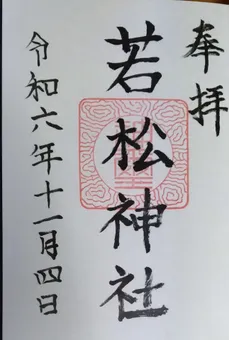 奉拝
若松神社
令和六年十一月四日